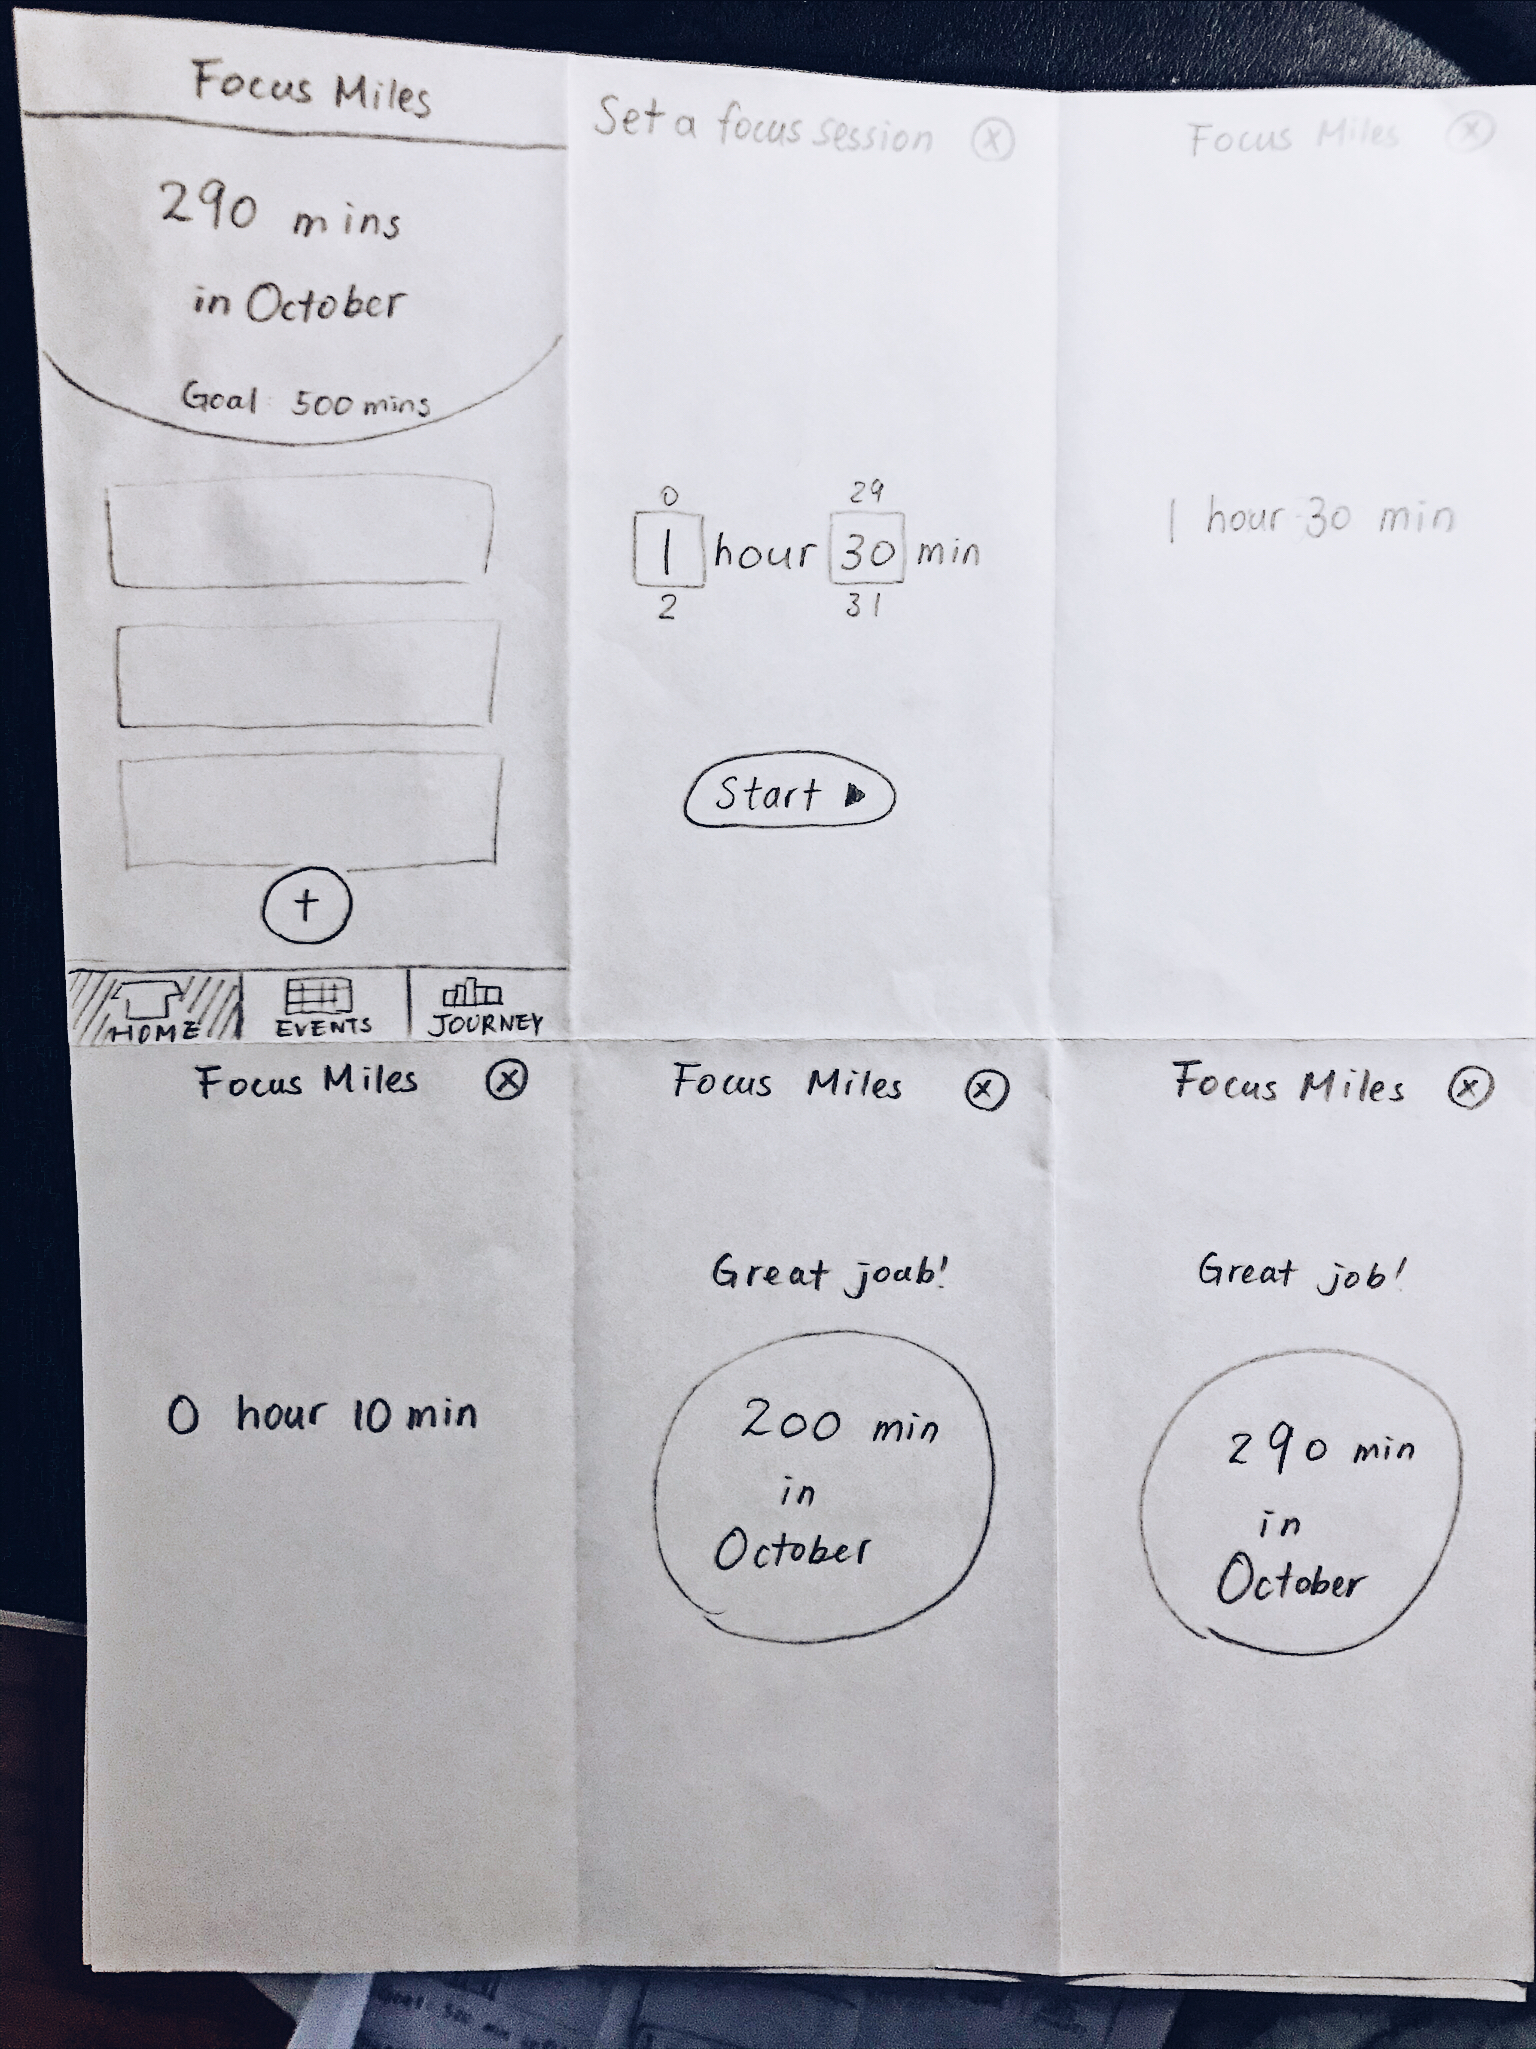 Focus Miles
290 mins
in October
Goal: 500 mins
+
HOME EVENTS JOURNEY
Set a focus session X
0 29
1 hour 30 min
2 31
Start
Focus Miles X
1 hour 30 min
Focus Miles X
0 hour 10 min
Focus Miles X
Great joab!
200 min
in
October
Focus Miles X
Great job!
290 min
in
October